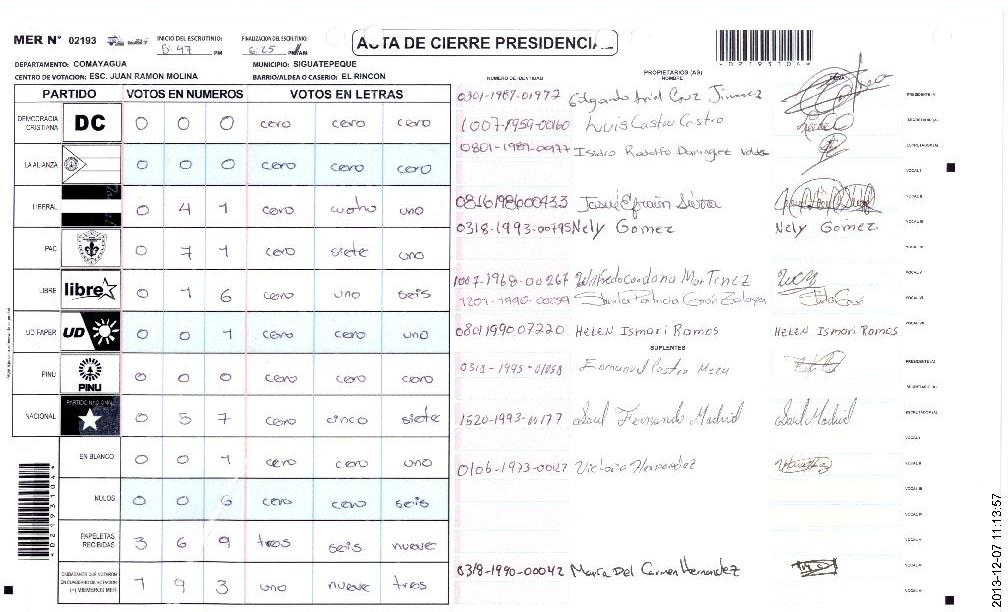 MER N° 02193 INICIO DEL ESCRUTINIO: 5:47 PM FINALIZACION DEL ESCRUTINIO: 6:25 PM/AM ACTA DE CIERRE PRESIDENCIAL
02193104
DEPARTAMENTO: COMAYAGUA MUNICIPIO: SIGUATEPEQUE
CENTRO DE VOTACION: ESC. JUAN RAMON MOLINA BARRIO/ALDEA O CASERIO: EL RINCON
NUMERO DE IDENTIDAD PROPIETARIOS (AS) NOMBRE
PARTIDO VOTOS EN NUMEROS VOTOS EN LETRAS
DEMOCRACIA CRISTIANA DC 0 0 0 cero cero cero
LA ALIANZA 0 0 0 cero cero cero
LIBERAL 0 4 1 cero cuatro uno
PAC 0 7 1 cero siete uno
LIBRE libre 0 1 6 cero uno seis
UD FAPER UD 0 0 1 cero cero uno
PINU PINU 0 0 0 cero cero cero
NACIONAL PARTIDO NACIONAL 0 5 7 cero cinco siete
EN BLANCO 0 0 1 cero cero uno
NULOS 0 0 6 cero cero seis
PAPELETAS RECIBIDAS 3 6 9 tres seis nueve
CIUDADANOS QUE VOTARON EN CUADERNO DE VOTACION (+) MIEMBROS MER 1 9 3 uno nueve tres
0301-1987-01977 Edgardo Ariel Cruz Jimenez PRESIDENTE (A)
1007-1959-00160 Luis Castro Castro SECRETARIO (A)
0801-1989-00977 Isidro Rodolfo Dominguez ESCRUTADOR (A)
VOCAL I
0816198600433 Josué Efraín Sierra VOCAL II
0318-1993-00795 Nely Gomez Nely Gomez. VOCAL III
VOCAL IV
1007-1968-00267 Wilfredo Cardona Martinez VOCAL V
1201-1990-00059 VOCAL VI
0801199007220 HELEN Ismari Ramos HELEN Ismari Ramos VOCAL VII
SUPLENTES
0318-1995-01058 Emmanuel Castro Meza PRESIDENTE (A)
SECRETARIO (A)
1520-1993-00177 Saul Fernando Madrid Saul Madrid ESCRUTADOR (A)
VOCAL I
0106-1973-00127 Victoria Hernandez VOCAL II
VOCAL III
VOCAL IV
VOCAL V
0318-1990-00042 María Del Carmen Hernandez
02193104
2013-12-07 11:13:57